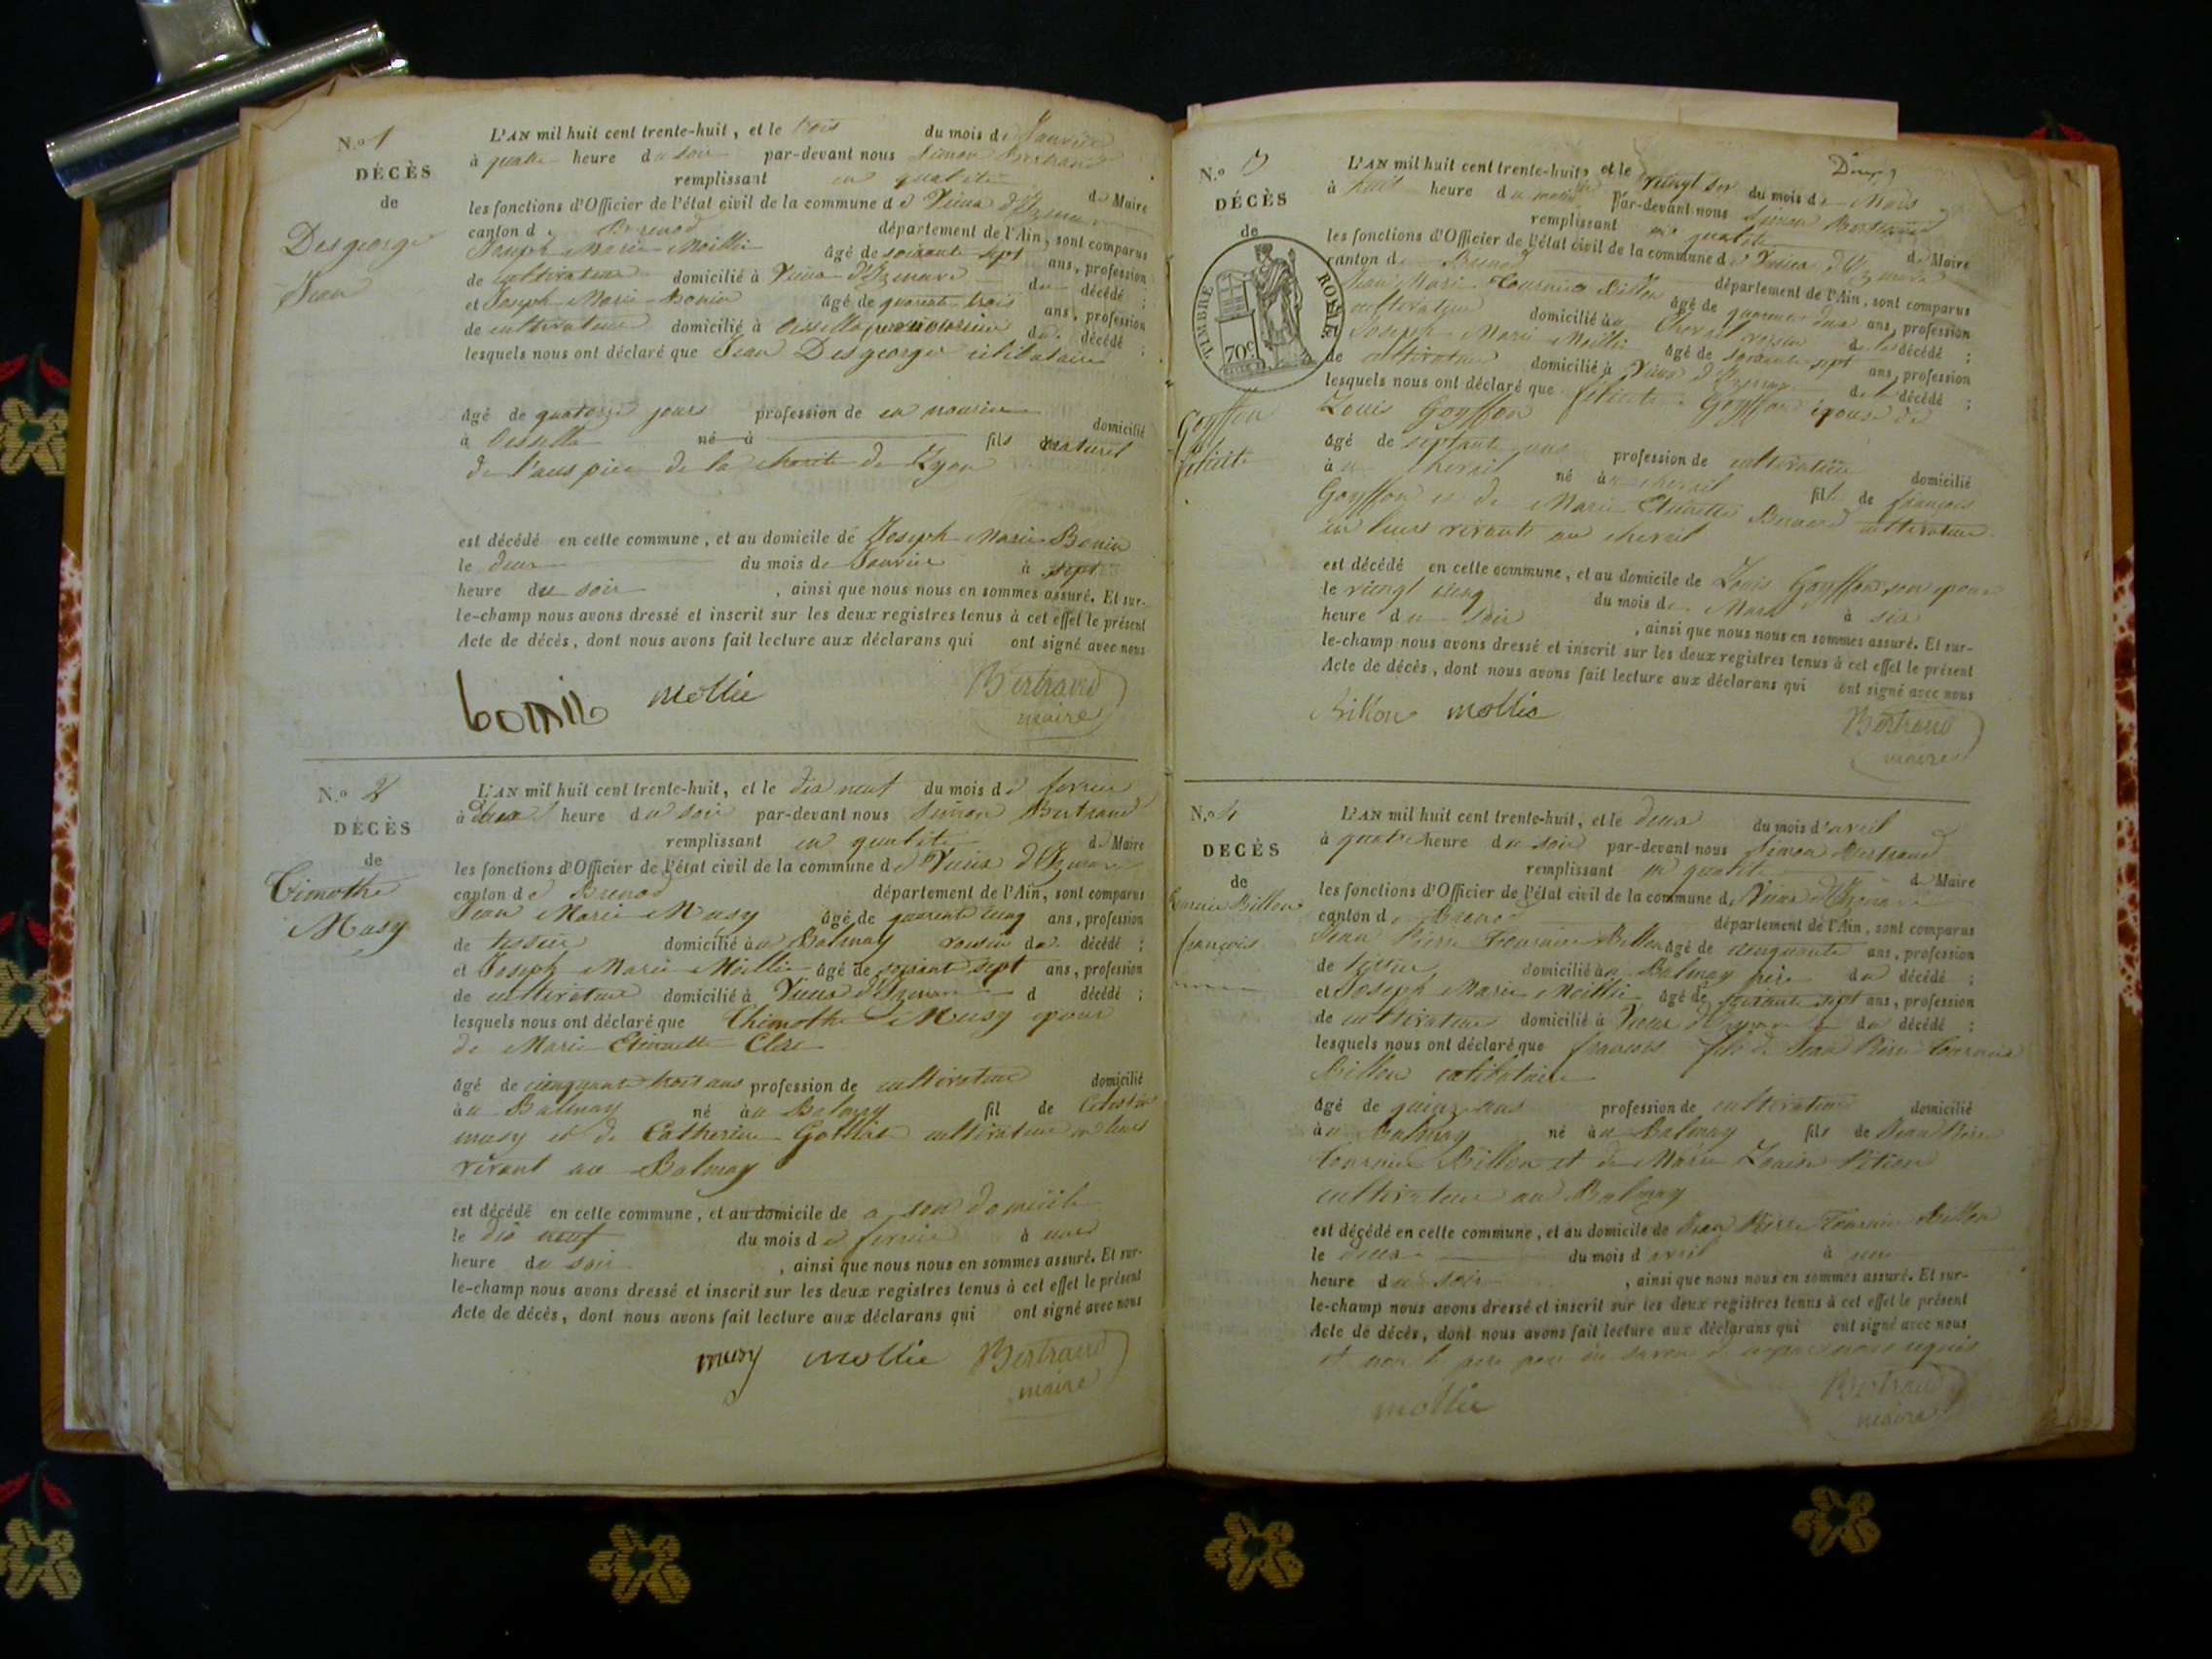 N.o 1
DÉCÈS
de
Desgeorge
Jean
L'AN mil huit cent trente-huit, et le trois du mois de Janvier
à quatre heure du soir par-devant nous Simon Bertrand
remplissant en qualité de Maire
les fonctions d'Officier de l'état civil de la commune de Vieux d'Izenave
canton de Brenod département de l'Ain, sont comparus
Joseph Marie Moillie âgé de soixante sept ans, profession
de cultivateur domicilié à Vieux d'Izenave du décédé ;
et Joseph Marie Bonin âgé de quarante trois ans, profession
de cultivateur domicilié à du décédé ;
lesquels nous ont déclaré que Jean Desgeorge célibataire
âgé de quatorze jours profession de en nourice domicilié
à né à fils naturel
de l'auspice de la charité de Lyon
est décédé en cette commune, et au domicile de Joseph Marie Bonin
le deux du mois de Janvier à sept
heure du soir , ainsi que nous nous en sommes assuré. Et sur-
le-champ nous avons dressé et inscrit sur les deux registres tenus à cet effet le présent
Acte de décès, dont nous avons fait lecture aux déclarans qui ont signé avec nous
bonin mollie Bertrand
maire
N.o 2
DÉCÈS
de
Timothe
Musy
L'AN mil huit cent trente-huit, et le dix neuf du mois de fevrier
à deux heure du soir par-devant nous Simon Bertrand
remplissant en qualité de Maire
les fonctions d'Officier de l'état civil de la commune de Vieux d'Izenave
canton de Brenod département de l'Ain, sont comparus
Jean Marie Musy âgé de quarente cinq ans, profession
de tissier domicilié au Balmay voisin du décédé ;
et Joseph Marie Moillie âgé de soixante sept ans, profession
de cultivateur domicilié à Vieux d'Izenave d décédé ;
lesquels nous ont déclaré que Thimothe Musy epoux
de Marie Etiennette Clerc
âgé de cinquante trois ans profession de cultivateur domicilié
au Balmay né au Balmay fil de
musy et de Catherine cultivateur en leurs
vivant au Balmay
est décédé en cette commune, et au domicile de a son domicile
le dix neuf du mois de fevrier à une
heure du soir , ainsi que nous nous en sommes assuré. Et sur-
le-champ nous avons dressé et inscrit sur les deux registres tenus à cet effet le présent
Acte de décès, dont nous avons fait lecture aux déclarans qui ont signé avec nous
musy mollie Bertrand
maire
N.o 3
DÉCÈS
de
TIMBRE ROYAL
70c
Goyffon
felicité
L'AN mil huit cent trente-huit, et le vingt six du mois de Mars
à huit heure du matin par-devant nous Simon Bertrand
remplissant en qualité de Maire
les fonctions d'Officier de l'état civil de la commune de Vieux d'Izenave
canton de Brenod département de l'Ain, sont comparus
Jean Marie Tournier Billon âgé de quarente deux ans, profession
cultivateur domicilié au Chevril voisin de la décédé ;
Joseph Marie Moillie âgé de soixante sept ans, profession
de cultivateur domicilié à Vieux d'Izenave de la décédé ;
lesquels nous ont déclaré que félicité Goyffon épouse de
Louis Goyffon
âgé de septante ans profession de cultivatrice domicilié
au chevril né au chevril fille de françois
Goyffon et de Marie cultivateur
en leurs vivants au chevril
est décédé en cette commune, et au domicile de Louis Goyffon son epoux
le vingt cinq du mois de Mars à six
heure du soir , ainsi que nous nous en sommes assuré. Et sur-
le-champ nous avons dressé et inscrit sur les deux registres tenus à cet effet le présent
Acte de décès, dont nous avons fait lecture aux déclarans qui ont signé avec nous
Billon mollie Bertrand
maire
N.o 4
DÉCÈS
de
Tournier Billon
françois
L'AN mil huit cent trente-huit, et le deux du mois d'avril
à quatre heure du soir par-devant nous Simon Bertrand
remplissant en qualité de Maire
les fonctions d'Officier de l'état civil de la commune de Vieux d'Izenave
canton de Brenod département de l'Ain, sont comparus
Jean Pierre Tournier Billon âgé de cinquante ans, profession
de tissier domicilié au Balmay père du décédé ;
et Joseph Marie Moillie âgé de soixante sept ans, profession
de cultivateur domicilié à Vieux d'Izenave du décédé ;
lesquels nous ont déclaré que francois fils de Jean Pierre tournier
Billon célibataire
âgé de quinze ans profession de cultivateur domicilié
au Balmay né au Balmay fils de Jean Pierre
tournier Billon et de Marie Louise
cultivateur au Balmay
est décédé en cette commune, et au domicile de Jean Pierre Tournier Billon
le deux du mois d avril à une
heure du soir , ainsi que nous nous en sommes assuré. Et sur-
le-champ nous avons dressé et inscrit sur les deux registres tenus à cet effet le présent
Acte de décès, dont nous avons fait lecture aux déclarans qui ont signé avec nous
et non le père pour ne savoir requis
mollie Bertrand
maire